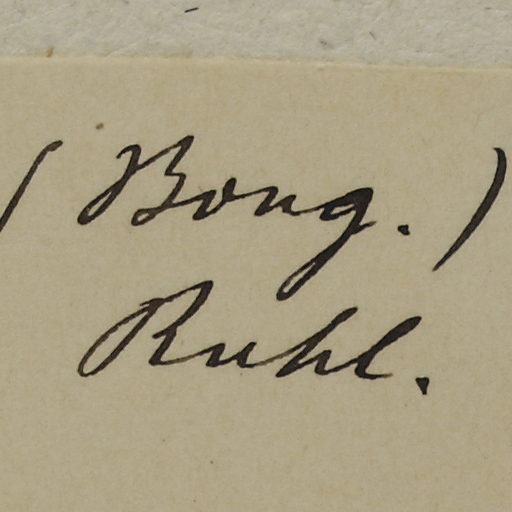 (Bong.)
Ruhl.